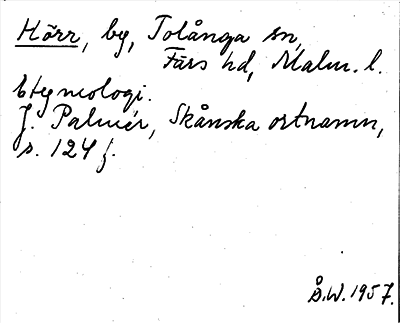 Hörr, by, Tolånga sn,
Färs hd, Malm. l.
Etymologi.
J. Palmér, Skånska ortnamn,
s. 124 f.
Å.W. 1957.